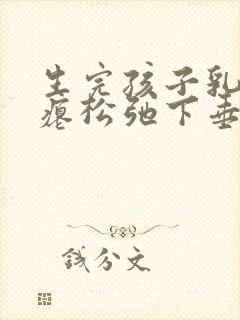 生完孩子乳
瘪松弛下垂
钱分文